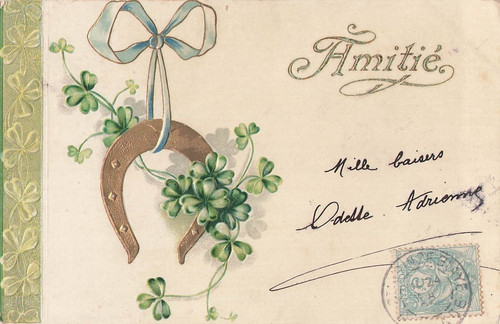 Amitié
Mille baisers
Odette Adrienne